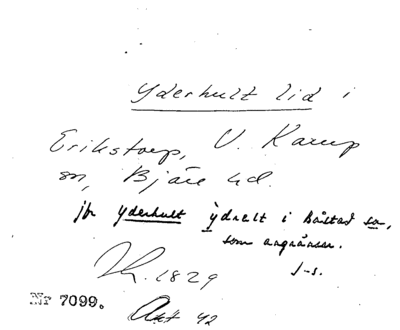 Yderhult lid i
Erikstorp, V. Karup
sn, Bjäre hd.
jfr Yderhult ydralt i Båstad sn,
som angränsar.
J-s.
Jk. 1829
Nr 7099. Akt 42